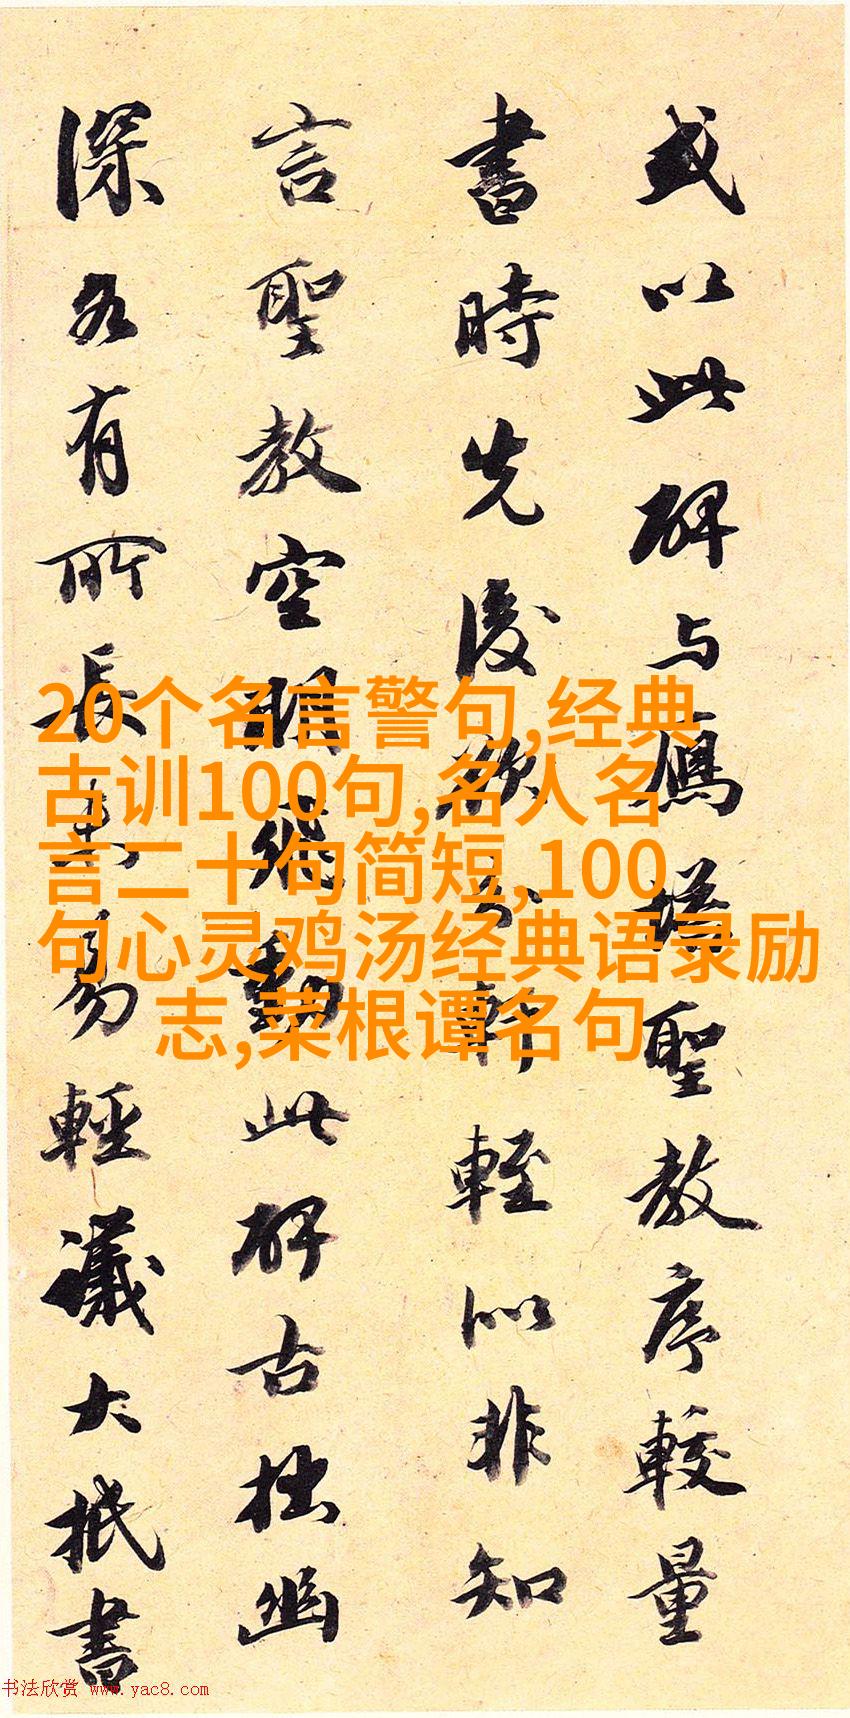 或以此碑与鴈塔聖教序較量
書時先後欲分軒輊以非知
言聖教空明飛動此碑古拙幽
深各有所長未易輕議大抵書
20个名言警句,经典
古训100句,名人名
言二十句简短,100
句心灵鸡汤经典语录励
志,菜根谭名句
书法欣赏 www.yac8.com